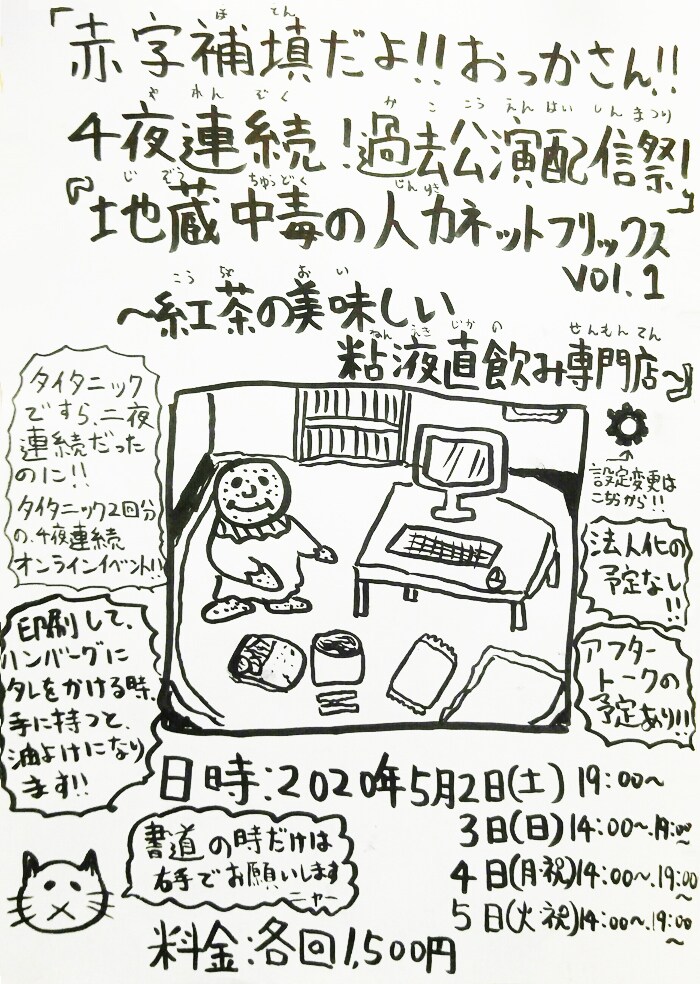 「赤字補填だよ!!おっかさん!!
ほてん
4夜連続!過去公演配信祭!」
やれんぞく
かここうえんはいしんまつり
『地蔵中毒の人力ネットフリックス
じぞう ちゅうどく じんりき
vol.1
～紅茶の美味しい
こうちゃ おい
粘液直飲み専門店～』
ねんえきじかの せんもんてん
タイタニック
ですら、二夜
連続だった
のに!!
タイタニック2回分
の、4夜連続
オンラインイベント!!
↑
設定変更は
こちらから!!
法人化の
予定なし!!
印刷して、
ハンバーグに
タレをかける時、
手に持つと、
油よけになり
ます!!
アフター
トークの
予定あり!!
日時:2020年5月2日(土) 19:00～
3日(日)14:00～.19:00～
4日(月・祝)14:00～.19:00～
5日(火・祝)14:00～.19:00～
書道の時だけは
右手でお願いします
ニャー
料金:各回1,500円